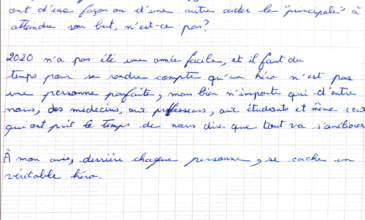 ont d'une façon ou d'une autre aider le "principale" à
atteindre son but, n'est-ce pas?
2020 n'a pas été une année facile, et il faut du
temps pour se rendre compte qu'un héro n'est pas
une personne parfaite, mais bien n'importe qui d'entre
nous, des médecins, aux professeurs, aux étudiants et même ceux
qui ont prit le temps de nous dire que tout va s'améliorer
À mon avis, derrière chaque personne, se cache un
véritable héro.